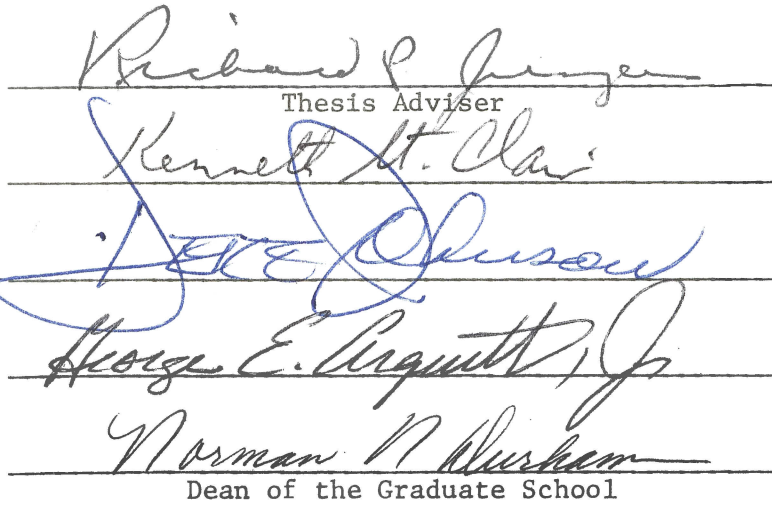 Richard P. Jungers
Thesis Adviser
Kenneth St. Clair
Johnson
George E. Arquitt, Jr
Norman N Durham
Dean of the Graduate School